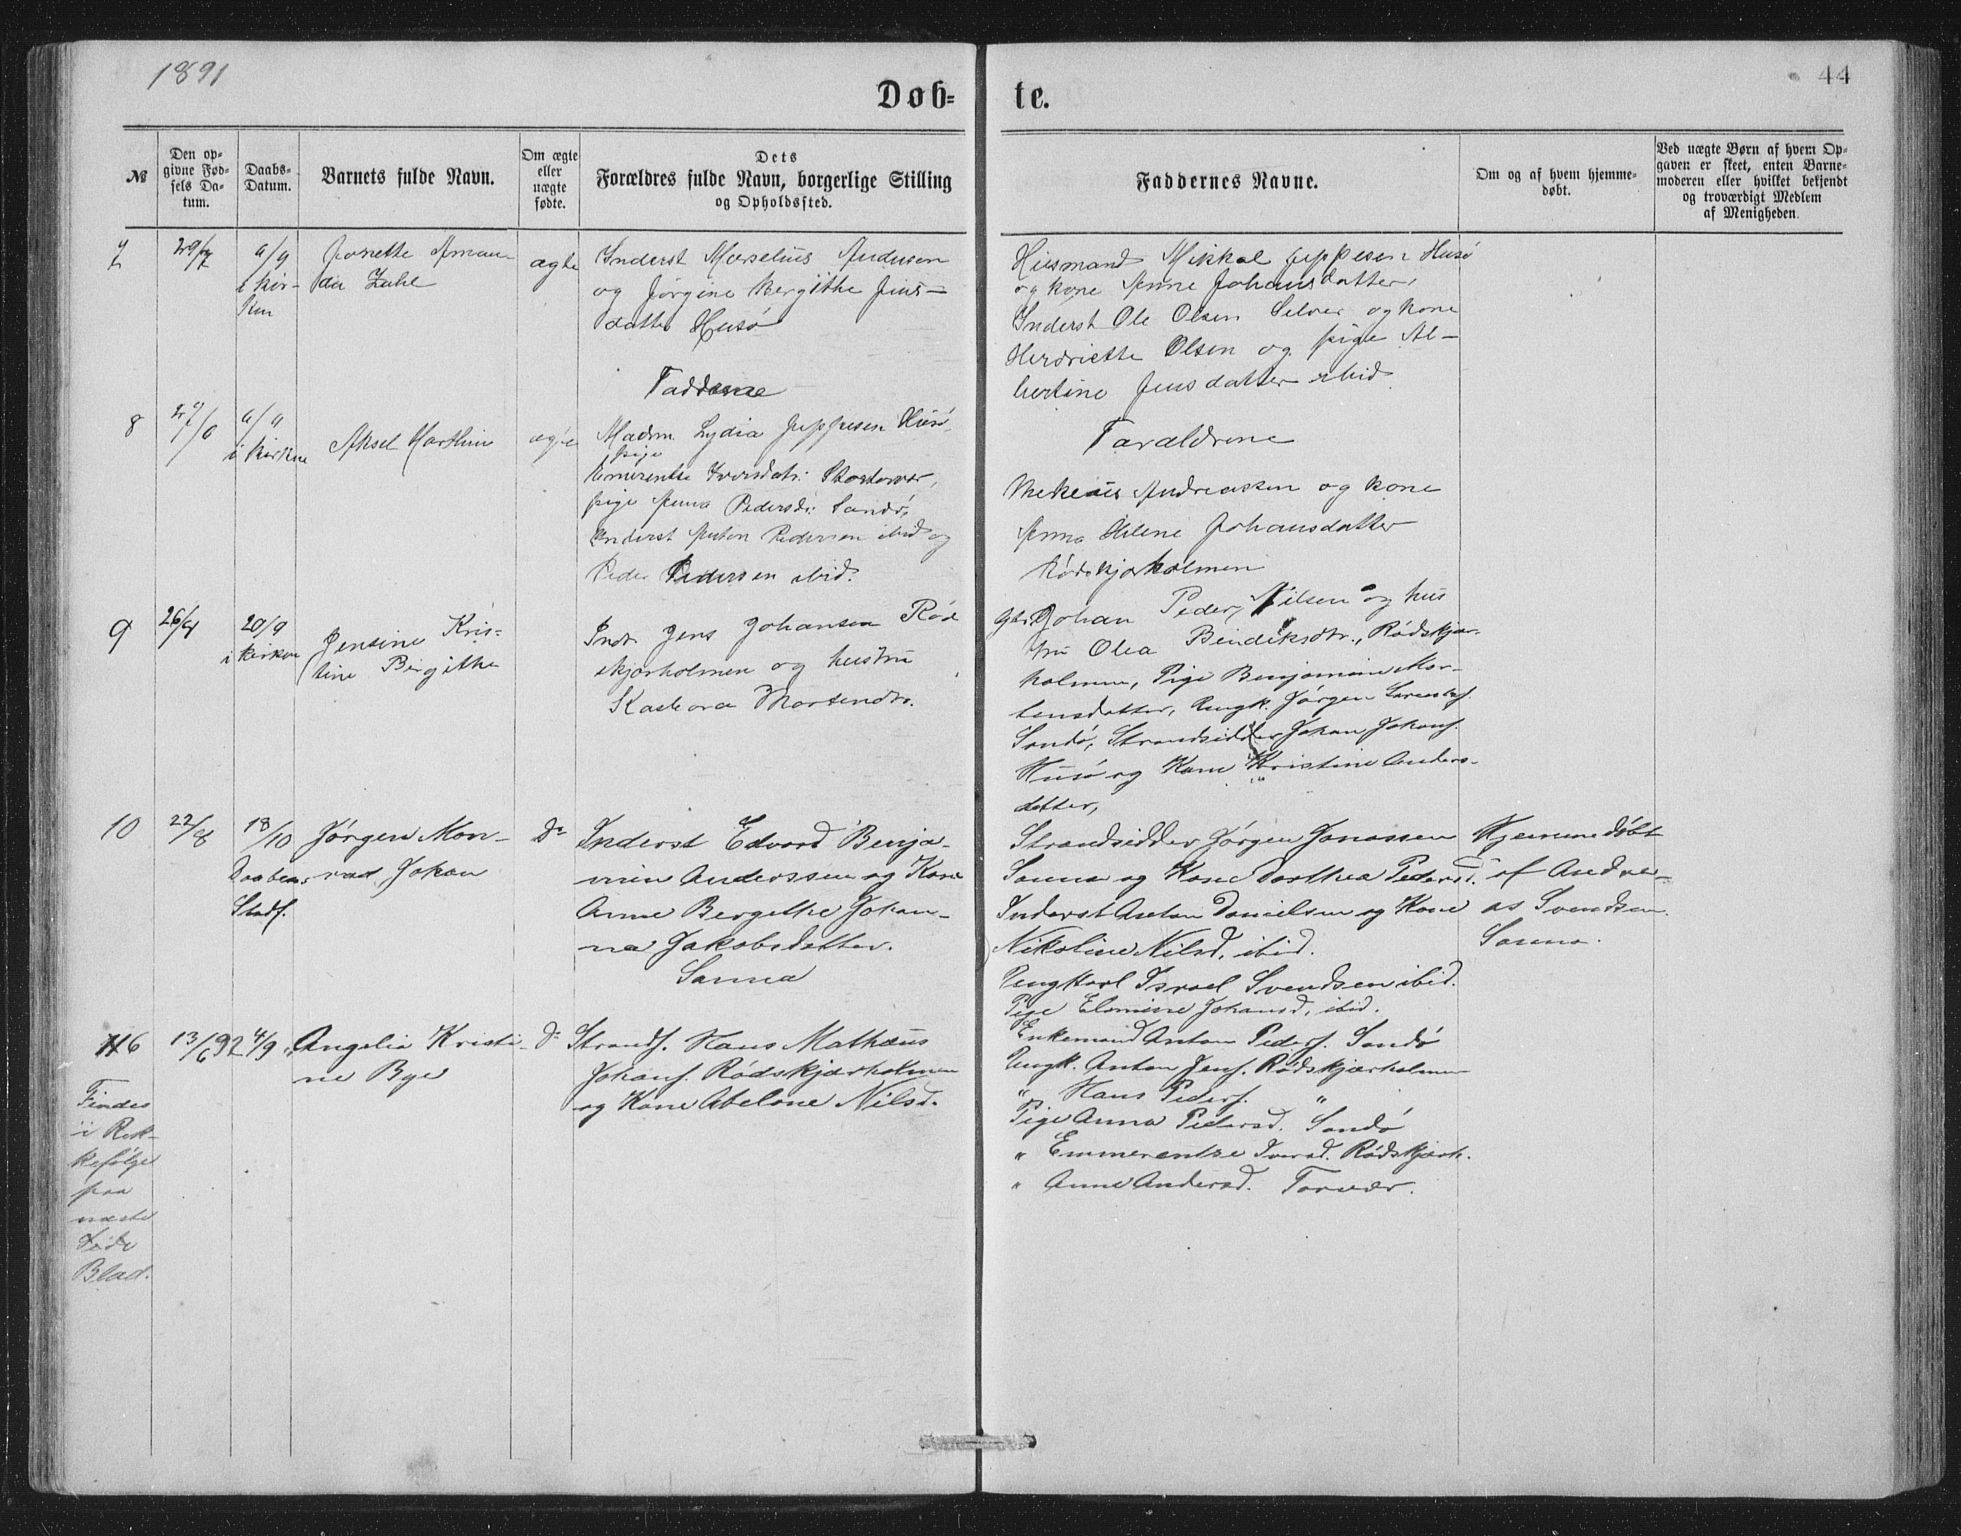 1891
44
Døb- te.
№
Den op-
givne Fød-
sels Da-
tum.
Daabs-
Datum.
Barnets fulde Navn.
Om ægte
eller
uægte
fødte.
Dets
Forældres fulde Navn, borgerlige Stilling
og Opholdssted.
Faddernes Navne.
Om og af hvem hjemme-
døbt.
Ved uægte Børn af hvem Op-
gaven er skeet, enten Barne-
moderen eller hvilket bekjendt
og troværdigt Medlem
af Menigheden.
7
29/7
6/9
i kir-
ken
Jonette Aman-
da Zahl
ægte
Inderst Marselius Andersen
og Jørgine Bergithe Jens-
datter Husø
Husmand Mikkal Jeppesen Husø
og kone Anne Johansdatter,
Inderst Ole Olsen Selvær og kone
Hendriette Olsen og pige Al-
bertine Jensdatter ibid.
8
6/9
i kirken
Aksel Marthin
ægte
Fadderne
Madm. Lydia Jeppesen Husø,
pige
Emerentse Iversdatr:
pige Anna Pedersd: Sandø,
Inderst Anton Pedersen ibid og
Peder Pedersen ibid.
Forældrene
Andreassen og kone
Anna Helene Johansdatter
Rødskjærholmen
9
26/4
20/9
i kirken
Jensine Kris-
tine Bergithe
Indr. Jens Johansen Rød
skjærholmen og hustru
Mortensdtr.
Johan Peder Nilsen og hus
tru Olea Bendiksdtr., Rødskjær-
holmen, Pige Benjamine Mor-
tensdatter, Ungk. Jørgen
Sandø, Strandsidder Johan Johans.
Husø og Kone Kristine Anders-
datter,
10
22/8
18/10
Daaben
Stadf.
Jørgen Mon-
rad Johan
Do
Inderst Edvard Benja-
min Anderssen og Kone
Anne Bergithe Johan-
na Jakobsdatter.
Sanna
Strandsidder Jørgen Jonassen
Sanna og Kone Dorthea Pedersd.
Inderst Anton Danielsen og Kone
Nikoline Nilsd. ibid.
Ungkarl Israel Svendsen ibid.
Pige Elomine Johansd. ibid.
Hjemmedøbt
af Andre-
as Svendsen
Sanna.
6
13/6 92
4/9
Angelia Kristi-
ne Bye
Do
Strands. Hans Mathæus
Johans. Rødskjærholmen
og Kone Abelone Nilsd.
Enkemand Anton Peders. Sandø
Ungk. Anton Jens. Rødskjærholmen
" Hans Peders. "
Pige Anna Pedersd. Sandø
" Emmerentse Iversd. Rødskjærh.
" Anne Andersd. Torvær.
Findes
i Ræk-
kefølge
paa
næste
Side
Blad.